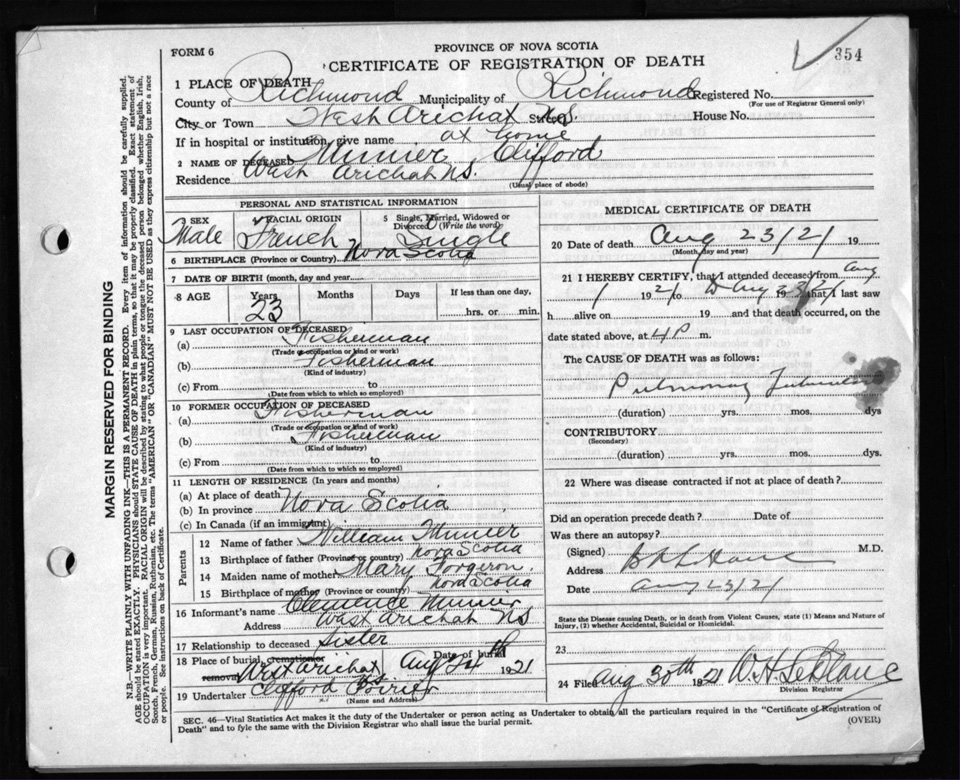 FORM 6
PROVINCE OF NOVA SCOTIA
354
CERTIFICATE OF REGISTRATION OF DEATH
1 PLACE OF DEATH
County of Richmond Municipality of Richmond Registered No.
(For use of Registrar General only)
City or Town West Arichat N.S. Street House No.
If in hospital or institution, give name at home
2 NAME OF DECEASED Clifford
Residence West Arichat N.S.
(Usual place of abode)
PERSONAL AND STATISTICAL INFORMATION
3 SEX Male
4 RACIAL ORIGIN French
5 Single, Married, Widowed or Divorced (Write the word) Single
6 BIRTHPLACE (Province or Country) Nova Scotia
7 DATE OF BIRTH (month, day and year)
8 AGE Years 23 Months Days If less than one day, hrs. or min.
9 LAST OCCUPATION OF DECEASED
(a) Fisherman
(Trade or occupation or kind or work)
(b) Fisherman
(Kind of industry)
(c) From to
(Date from which to which so employed)
10 FORMER OCCUPATION OF DECEASED
(a) Fisherman
(Trade or occupation or kind of work)
(b) Fisherman
(Kind of industry)
(c) From to
(Date from which to which so employed)
11 LENGTH OF RESIDENCE (In years and months)
(a) At place of death
(b) In province Nova Scotia
(c) In Canada (if an immigrant)
Parents
12 Name of father William
13 Birthplace of father (Province or country) Nova Scotia
14 Maiden name of mother Mary Forgeron
15 Birthplace of mother (Province or country) Nova Scotia
16 Informant's name Clemence
Address West Arichat N.S.
17 Relationship to deceased Sister
18 Place of burial, cremation or removal West Arichat Date of burial Aug 24th 1921
19 Undertaker Clifford Poirier
(Name and Address)
MEDICAL CERTIFICATE OF DEATH
20 Date of death Aug 23/21 19
(Month, day and year)
21 I HEREBY CERTIFY, that I attended deceased from Aug
1 1921 to Aug 23/21 19 that I last saw
h alive on 19 and that death occurred, on
date stated above, at 4 P m.
The CAUSE OF DEATH was as follows:
Pulmonary
(duration) yrs. mos. dys
CONTRIBUTORY
(Secondary)
(duration) yrs. mos. dys.
22 Where was disease contracted if not at place of death?
Did an operation precede death? Date of
Was there an autopsy?
(Signed) M.D.
Address
Date Aug 23/21
State the Disease causing Death, or in death from Violent Causes, state (1) Means and Nature of
Injury, (2) whether Accidental, Suicidal or Homicidal.
23
24 Filed Aug 30th 1921 W. H. LeBlanc
Division Registrar
SEC. 46—Vital Statistics Act makes it the duty of the Undertaker or person acting as Undertaker to obtain all the particulars required in the "Certificate of Registration of
Death" and to fyle the same with the Division Registrar who shall issue the burial permit.
(OVER)
MARGIN RESERVED FOR BINDING
N.B.—WRITE PLAINLY WITH UNFADING INK—THIS IS A PERMANENT RECORD. Every item of information should be carefully supplied.
AGE should be stated EXACTLY. PHYSICIANS should STATE CAUSE OF DEATH in plain terms, so that it may be properly classified. Exact statement of
OCCUPATION is very important. RACIAL ORIGIN will be described by stating to what people or tongue the deceased person belonged whether English, Irish,
Scotch, French, German, Russian, Ruthenian, etc. The terms "AMERICAN" OR "CANADIAN" MUST NOT BE USED as they express citizenship but not a race
or people. See instructions on back of Certificate.